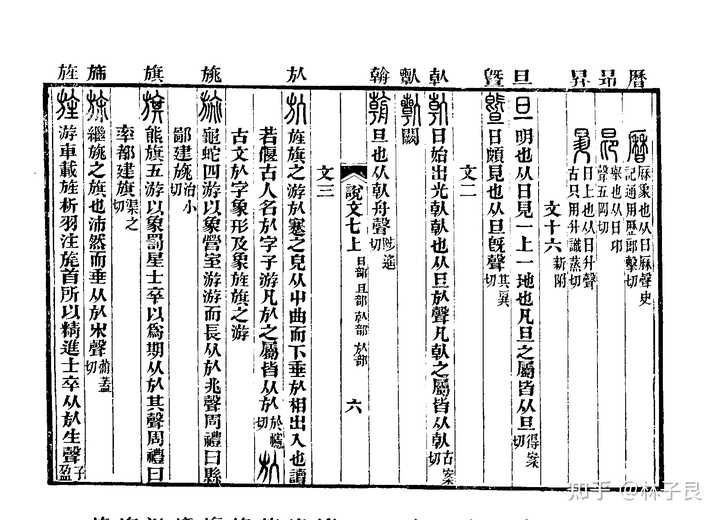 曆 昻 昇 旦 曁 倝 𠦮 翰 㫃 旐 旗 旆 旌
曆 厤象也从日厤聲史記通用歷郎擊切
昻 㝛也从日卬聲五岡切
昇 日上也从日升聲古只用升識蒸切
文十六 新附
旦 明也从日見一上一地也凡旦之屬皆从旦 得案切
曁 日頗見也从旦旣聲 其異切
文二
倝 日始出光倝倝也从旦㫃聲凡倝之屬皆从倝 古案切
闕
旦也从倝舟聲 陟遙切
說文七上 日部 旦部 倝部 㫃部 六
文三
㫃 旌旗之游㫃蹇之皃从屮曲而下垂㫃相出入也讀
若偃古人名㫃字子游凡㫃之屬皆从㫃 於幰切
古文㫃字象形及象旌旗之游
旐 龜蛇四游以象營室游游而長从㫃兆聲周禮曰縣
鄙建旐 治小切
旗 熊旗五游以象罰星士卒以爲期从㫃其聲周禮曰
率都建旗 渠之切
旆 繼旐之旗也沛然而垂从㫃宋聲 蒲蓋切
旌 游車載旌析羽注旄首所以精進士卒从㫃生聲 子盈切
知乎 @林子良